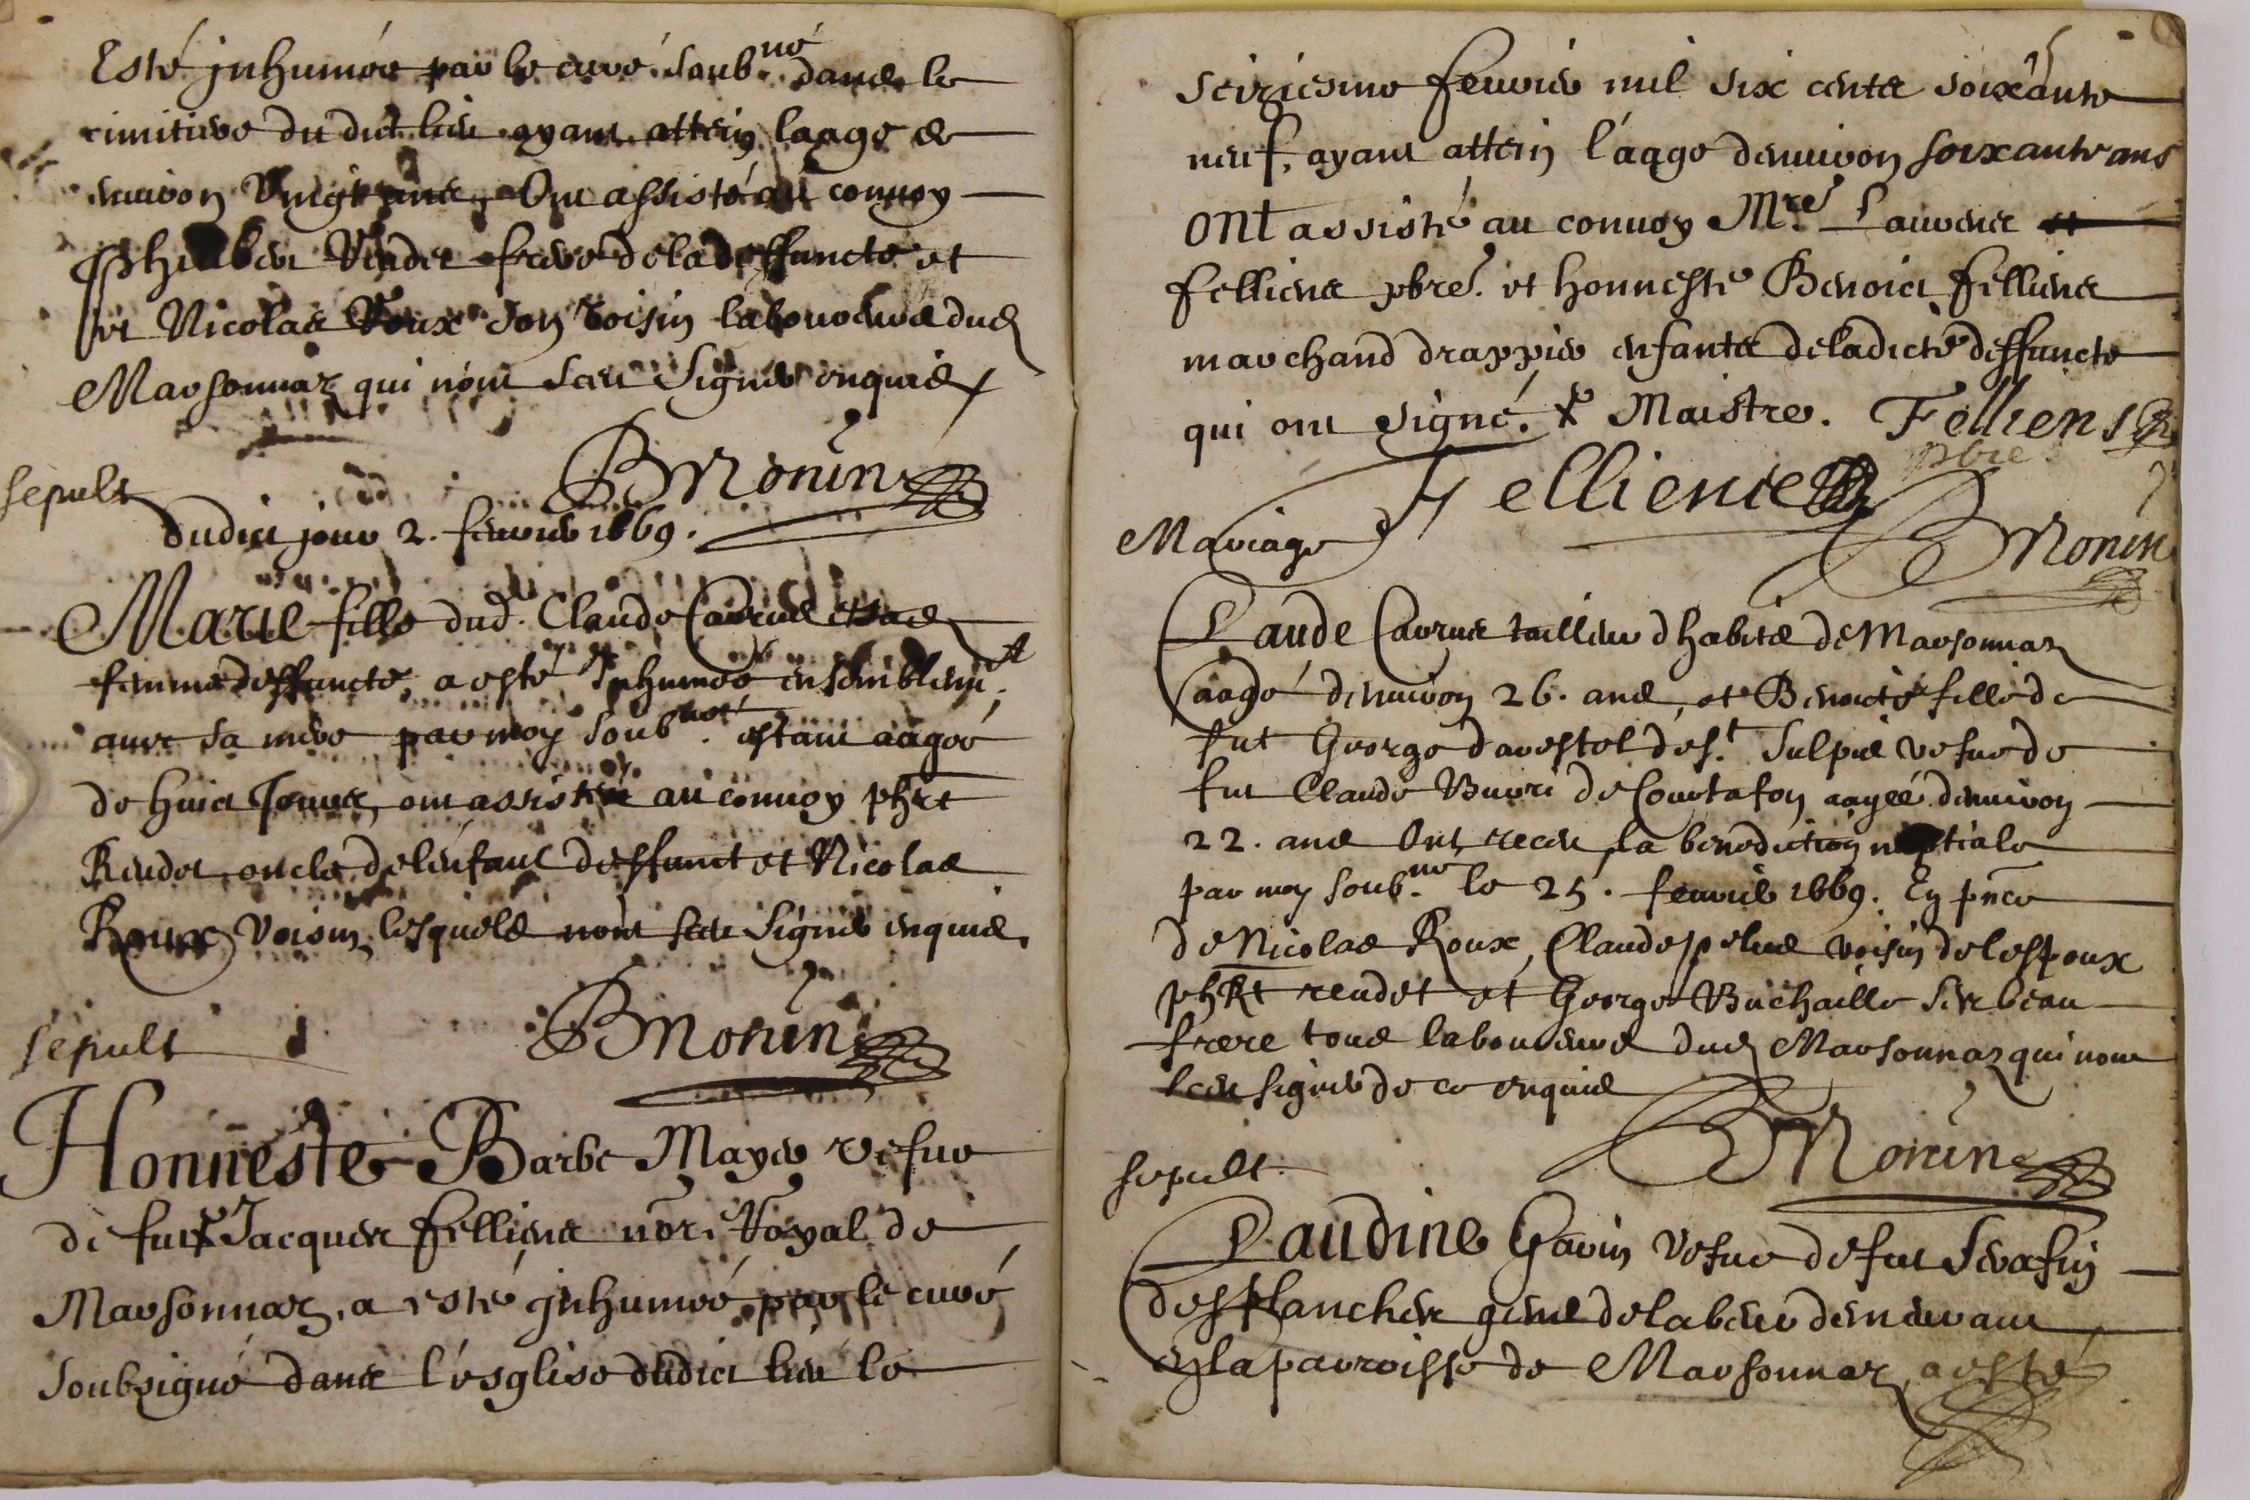 Esté jnhumée par le curé soub.né dans le
cimitiere du dict lieu ayant attein laage de
enuiron vingt ans, Ont assisté au conuoy
Philibert Rendet frere de la deffuncte et
et Nicolas Roux son voisin laboureurs dud
Marsonnaz qui nont sceu signer enquis
BMonin
sepult
dudict jour 2. feurier 1669.
Marie fille dud. Claude Carrus et sad
femme deffuncte, a esté Inhumée ensemblemt.
auec sa mere par moy soub.né estant aagée
de huict Jours, ont assistés au conuoy phrt
Rendet oncle de lenfant deffunct et Nicolas
Roux voisin lesquels nont sceu signer enquis.
BMonin
sepult
Honneste Barbe Mayer vefue
de fut Jacques felliens nore Royal de
Marsonnaz, a esté jnhumée par le curé
soubsigné dans l'esglise dudict lieu le
seiziesme feurier mil six cents soixante
neuf, ayant attein l'aage denuiron soixante ans
ont assisté au conuoy Mre. Laurens
felliens pbre. et honneste Benoict felliens
marchand drappier enfants de ladicte deffuncte
qui ont signé. Maistre. Felliens
pbre
Felliens
BMonin
Mariage
Claude Carrus tailleur dhabits de Marsonnaz
aagé denuiron 26. ans, et Benoicte fille de
fut George dauestel de st. Sulpis vefue de
fut Claude Buiri de Courtafon aagée denuiron
22. ans Ont receu la benediction nuptiale
par moy soub.né le 25. feurier 1669. En pnce
de Nicolas Roux, Claude pelus voisin de lespoux
phrt rendet et George Buchaille son beau
frere tous laboureurs dud Marsonnaz qui nont
sceu signer de ce enquis
BMonin
sepult.
Claudine Gauin vefue de fut Serafin
desplanches gens de labeur demeurant
en la parroisse de Marsonnaz, a esté